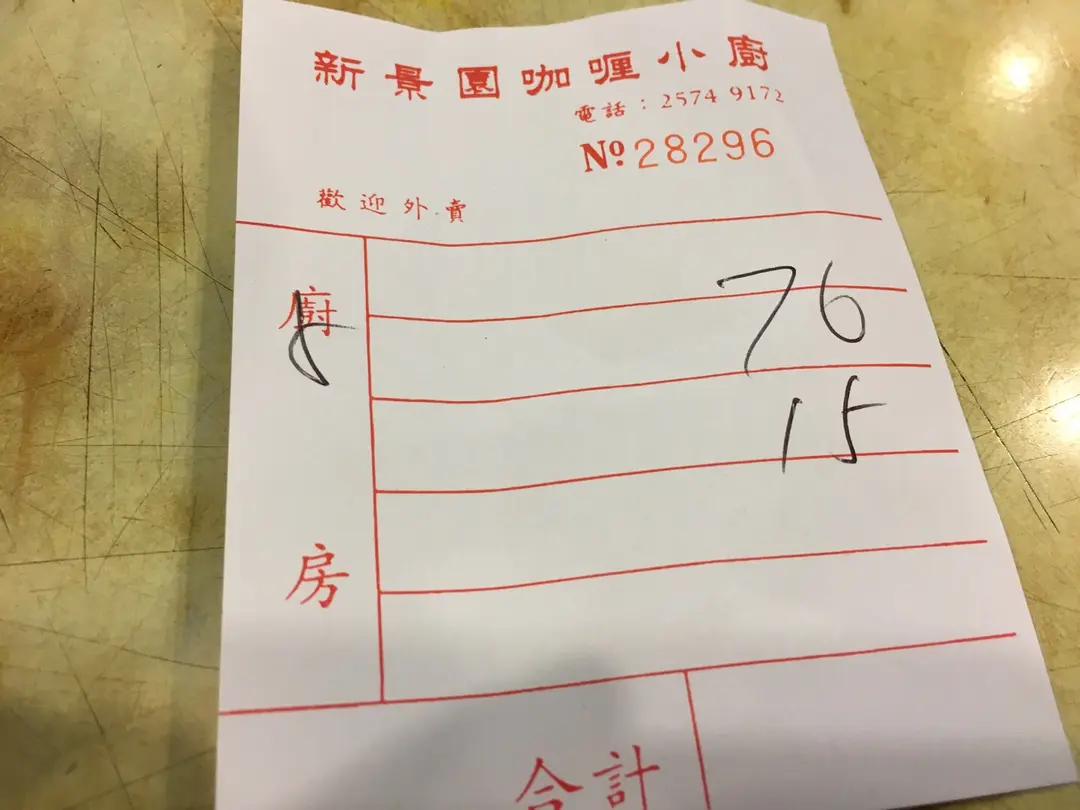 新景園咖喱小廚
電話：2574 9172
Nº 28296
歡迎外賣
廚房
76
15
合計